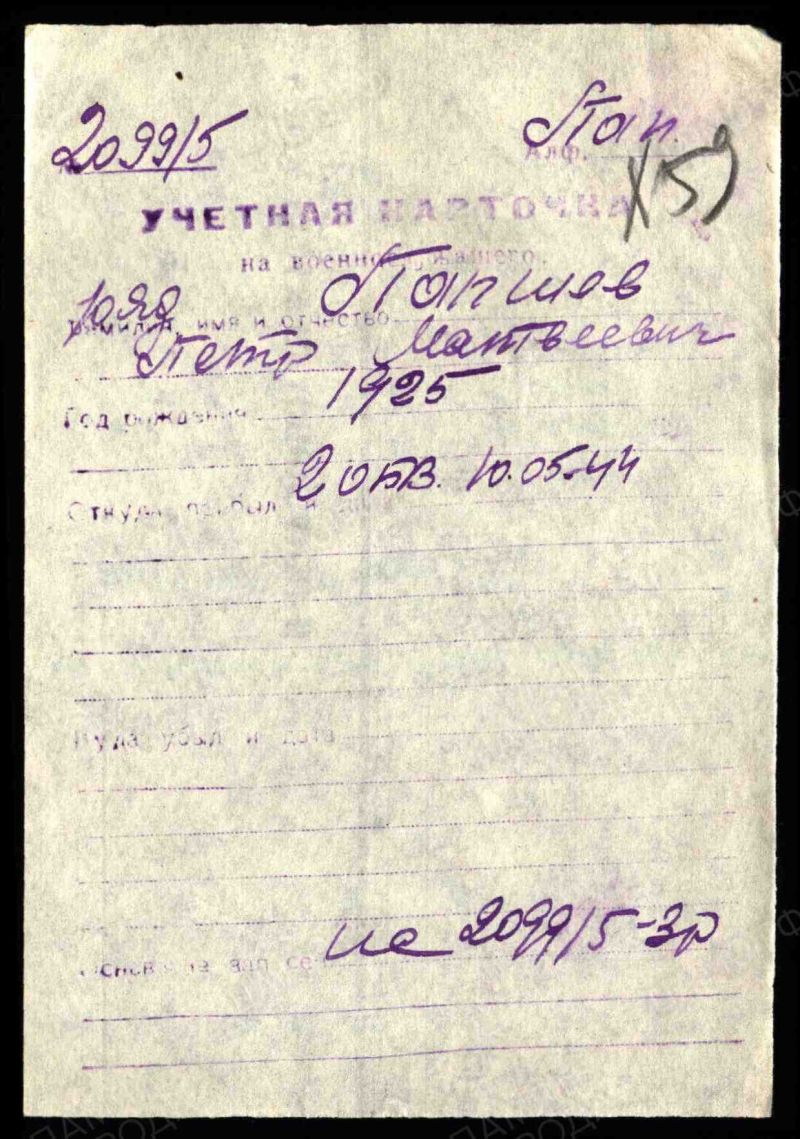 2099/5
Пап.
Алф.
(5)
УЧЕТНАЯ КАРТОЧКА
на военнослужащего.
ряд Папшев
Фамилия, имя и отчество
Петр Матвеевич
1925
Год рождения
2 ОБВ. 10.05.44
Откуда прибыл и
Куда убыл и дата
2099/5-зр
Основание записей